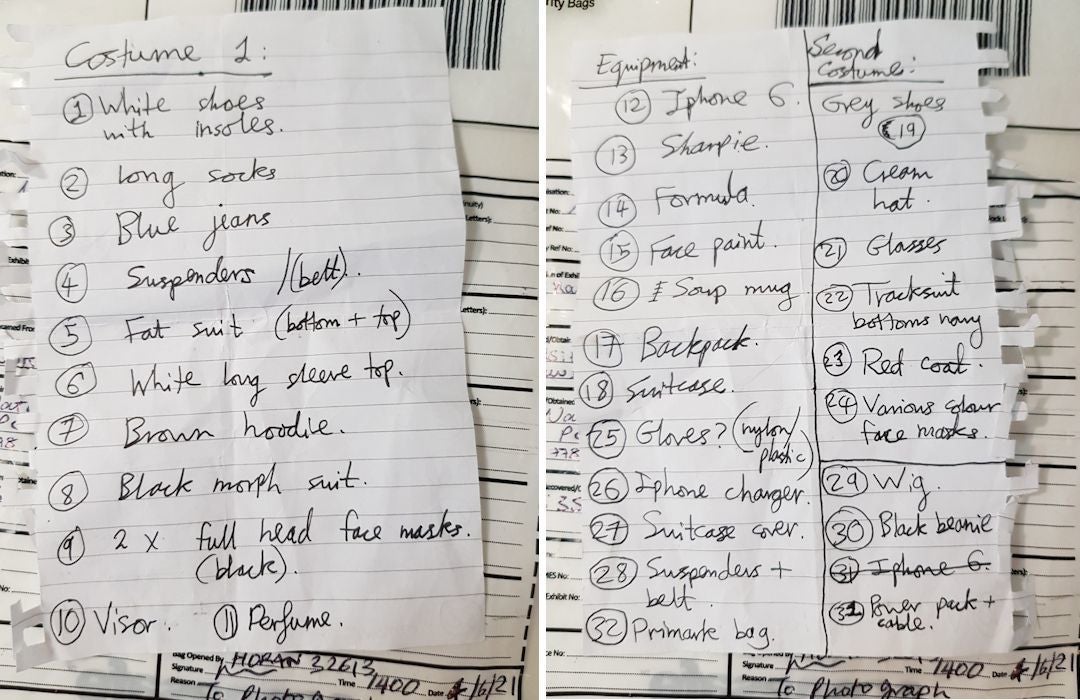 Costume 1:
① White shoes
with insoles.
② Long socks
③ Blue jeans
④ Suspenders /(belt).
⑤ Fat suit (bottom + top)
⑥ White long sleeve top.
⑦ Brown hoodie.
⑧ Black morph suit.
⑨ 2 x full head face masks.
(black).
⑩ Visor. ⑪ Perfume.
Bag Opened By HORAN 32613
Signature
Time 1400 Date /6/21
Reason To Photograph
rity Bags
Equipment:
⑫ Iphone 6.
⑬ Sharpie.
⑭ Formula.
⑮ Face paint.
⑯ Soup mug
⑰ Backpack.
⑱ Suitcase.
㉕ Gloves? (nylon/
plastic)
㉖ Iphone charger.
㉗ Suitcase cover.
㉘ Suspenders +
belt.
㉜ Primark bag.
Second
Costume:
Grey shoes
⑲
⑳ Cream
hat.
㉑ Glasses
㉒ Tracksuit
bottoms navy
㉓ Red coat.
㉔ Various colour
face masks.
㉙ Wig.
㉚ Black beanie
㉛ Iphone 6.
㉛ Power pack +
cable.
Signature
Time 1400 Date /6/21
Reason To Photograph